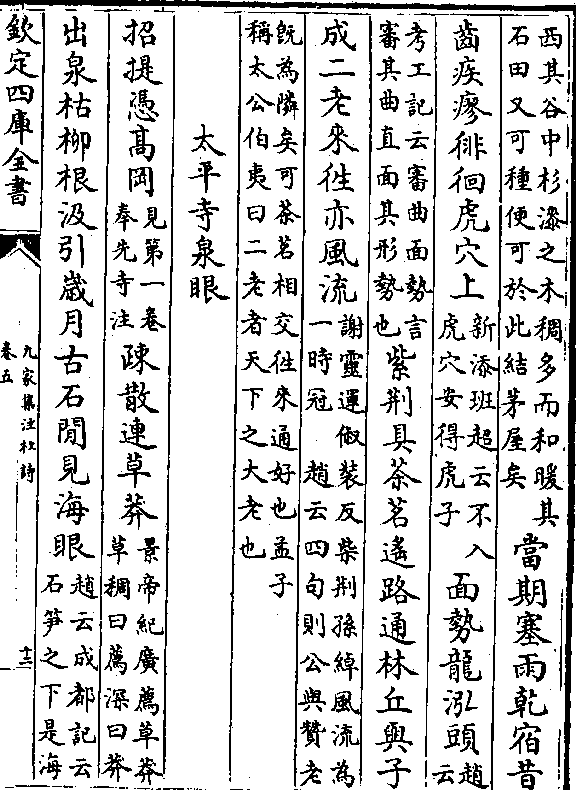 西其谷中杉漆之木稠多而和暖其
石田又可種便可於此結茅屋矣
當期塞雨乾宿昔
齒疾瘳徘徊虎穴上
新添班超云不入
虎穴安得虎子
面勢龍泓頭
趙
云
考工記云審曲面勢言
審其曲直面其形勢也
紫荆具茶茗遙路通林丘與子
成二老來往亦風流
謝靈運俶裝反柴荆孫綽風流為
一時冠 趙云四句則公與贊老
既為隣矣可茶茗相交往來通好也孟子
稱太公伯夷曰二老者天下之大老也
太平寺泉眼
招提憑高岡
見第一卷
奉先寺注
疎散連草莽
景帝紀廣薦草莽
草稠曰薦深曰莽
出泉枯柳根汲引歲月古石閒見海眼
趙云成都記云
石笋之下是海
欽定四庫全書
九家集注杜詩
卷五
十二